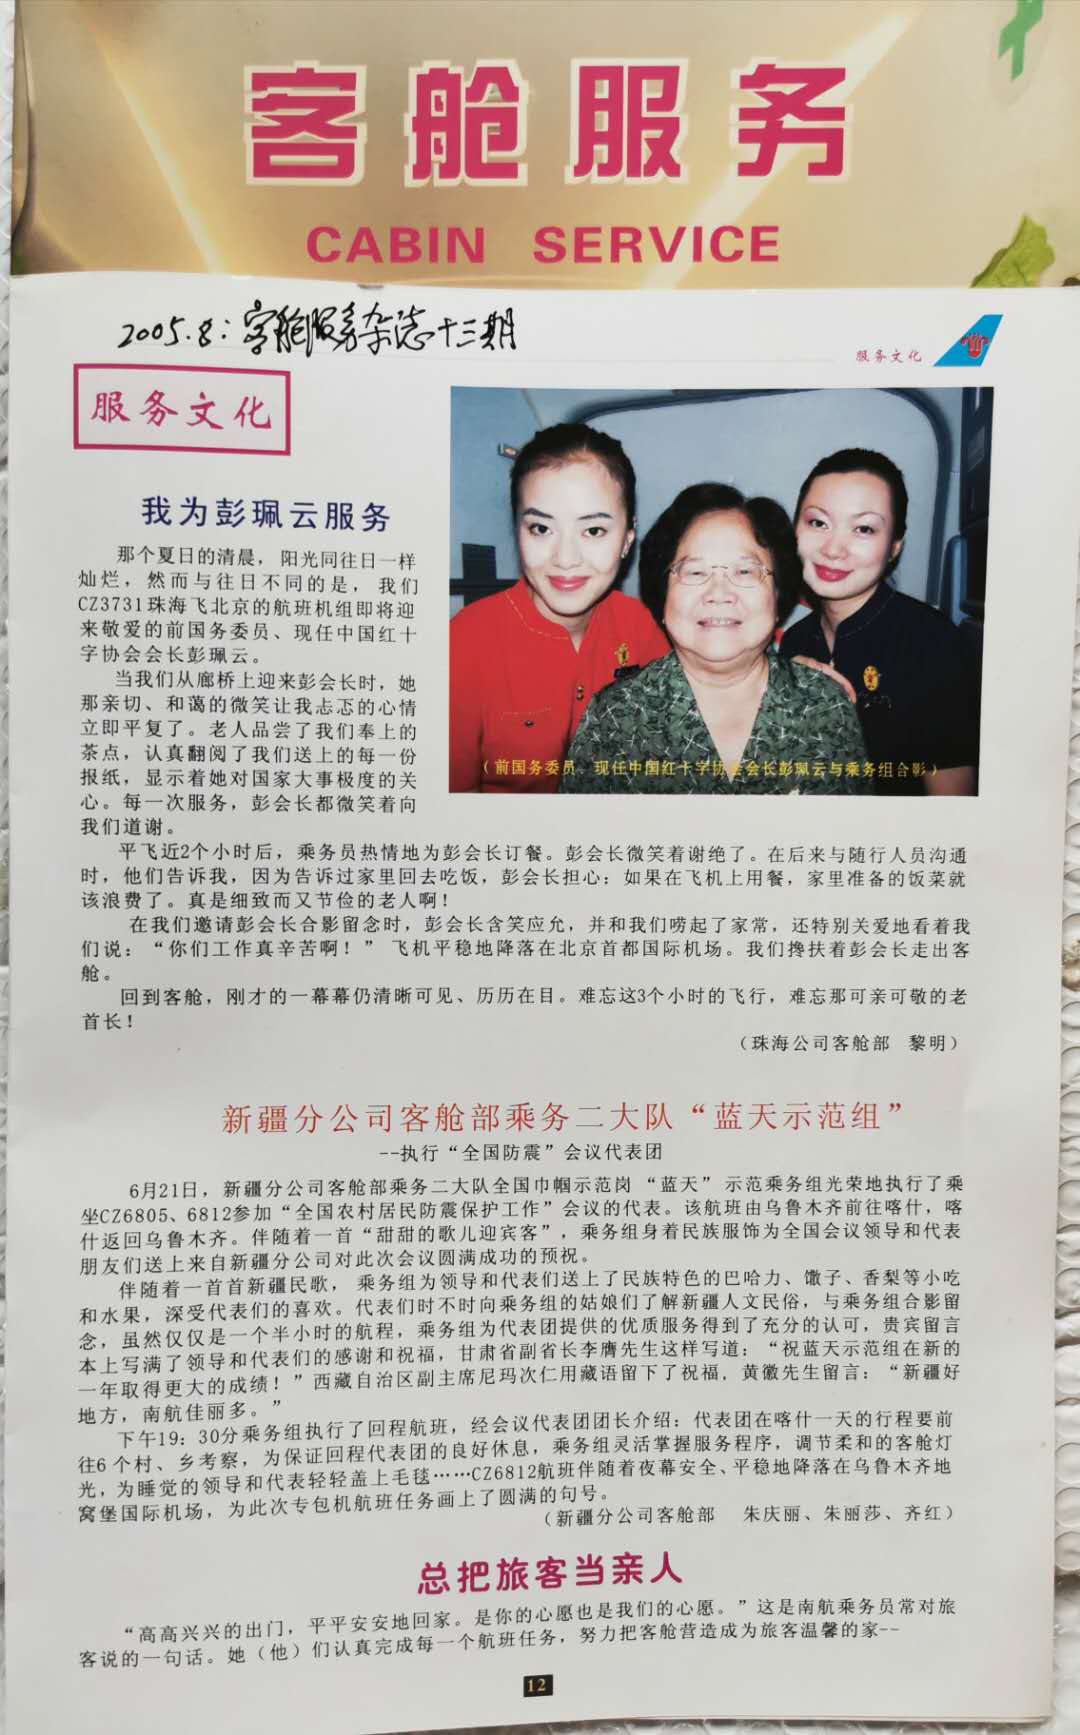 客舱服务
CABIN SERVICE
2005.8：客舱服务杂志十三期
服务文化
服务文化
我为彭珮云服务
那个夏日的清晨，阳光同往日一样
灿烂，然而与往日不同的是，我们
CZ3731珠海飞北京的航班机组即将迎
来敬爱的前国务委员、现任中国红十
字协会会长彭珮云。
当我们从廊桥上迎来彭会长时，她
那亲切、和蔼的微笑让我忐忑的心情
立即平复了。老人品尝了我们奉上的
茶点，认真翻阅了我们送上的每一份
报纸，显示着她对国家大事极度的关
心。每一次服务，彭会长都微笑着向
我们道谢。
（前国务委员、现任中国红十字协会会长彭珮云与乘务组合影）
平飞近2个小时后，乘务员热情地为彭会长订餐。彭会长微笑着谢绝了。在后来与随行人员沟通
时，他们告诉我，因为告诉过家里回去吃饭，彭会长担心：如果在飞机上用餐，家里准备的饭菜就
该浪费了。真是细致而又节俭的老人啊！
在我们邀请彭会长合影留念时，彭会长含笑应允，并和我们唠起了家常，还特别关爱地看着我
们说：“你们工作真辛苦啊！” 飞机平稳地降落在北京首都国际机场。我们搀扶着彭会长走出客
舱。
回到客舱，刚才的一幕幕仍清晰可见、历历在目。难忘这3个小时的飞行，难忘那可亲可敬的老
首长！
（珠海公司客舱部 黎明）
新疆分公司客舱部乘务二大队“蓝天示范组”
--执行“全国防震”会议代表团
6月21日，新疆分公司客舱部乘务二大队全国巾帼示范岗 “蓝天” 示范乘务组光荣地执行了乘
坐CZ6805、6812参加“全国农村居民防震保护工作”会议的代表。该航班由乌鲁木齐前往喀什，喀
什返回乌鲁木齐。伴随着一首“甜甜的歌儿迎宾客”，乘务组身着民族服饰为全国会议领导和代表
朋友们送上来自新疆分公司对此次会议圆满成功的预祝。
伴随着一首首新疆民歌， 乘务组为领导和代表们送上了民族特色的巴哈力、馓子、香梨等小吃
和水果，深受代表们的喜欢。代表们时不时向乘务组的姑娘们了解新疆人文民俗，与乘务组合影留
念，虽然仅仅是一个半小时的航程，乘务组为代表团提供的优质服务得到了充分的认可，贵宾留言
本上写满了领导和代表们的感谢和祝福，甘肃省副省长李膺先生这样写道：“祝蓝天示范组在新的
一年取得更大的成绩！”西藏自治区副主席尼玛次仁用藏语留下了祝福，黄徽先生留言：“新疆好
地方，南航佳丽多。”
下午19：30分乘务组执行了回程航班，经会议代表团团长介绍：代表团在喀什一天的行程要前
往6 个村、乡考察，为保证回程代表团的良好休息，乘务组灵活掌握服务程序，调节柔和的客舱灯
光，为睡觉的领导和代表轻轻盖上毛毯……CZ6812航班伴随着夜幕安全、平稳地降落在乌鲁木齐地
窝堡国际机场，为此次专包机航班任务画上了圆满的句号。
（新疆分公司客舱部 朱庆丽、朱丽莎、齐红）
总把旅客当亲人
“高高兴兴的出门，平平安安地回家。是你的心愿也是我们的心愿。”这是南航乘务员常对旅
客说的一句话。她（他）们认真完成每一个航班任务，努力把客舱营造成为旅客温馨的家--
12